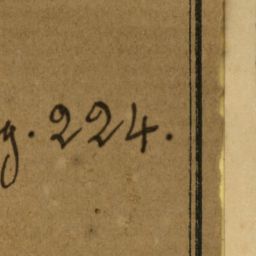 g. 224.